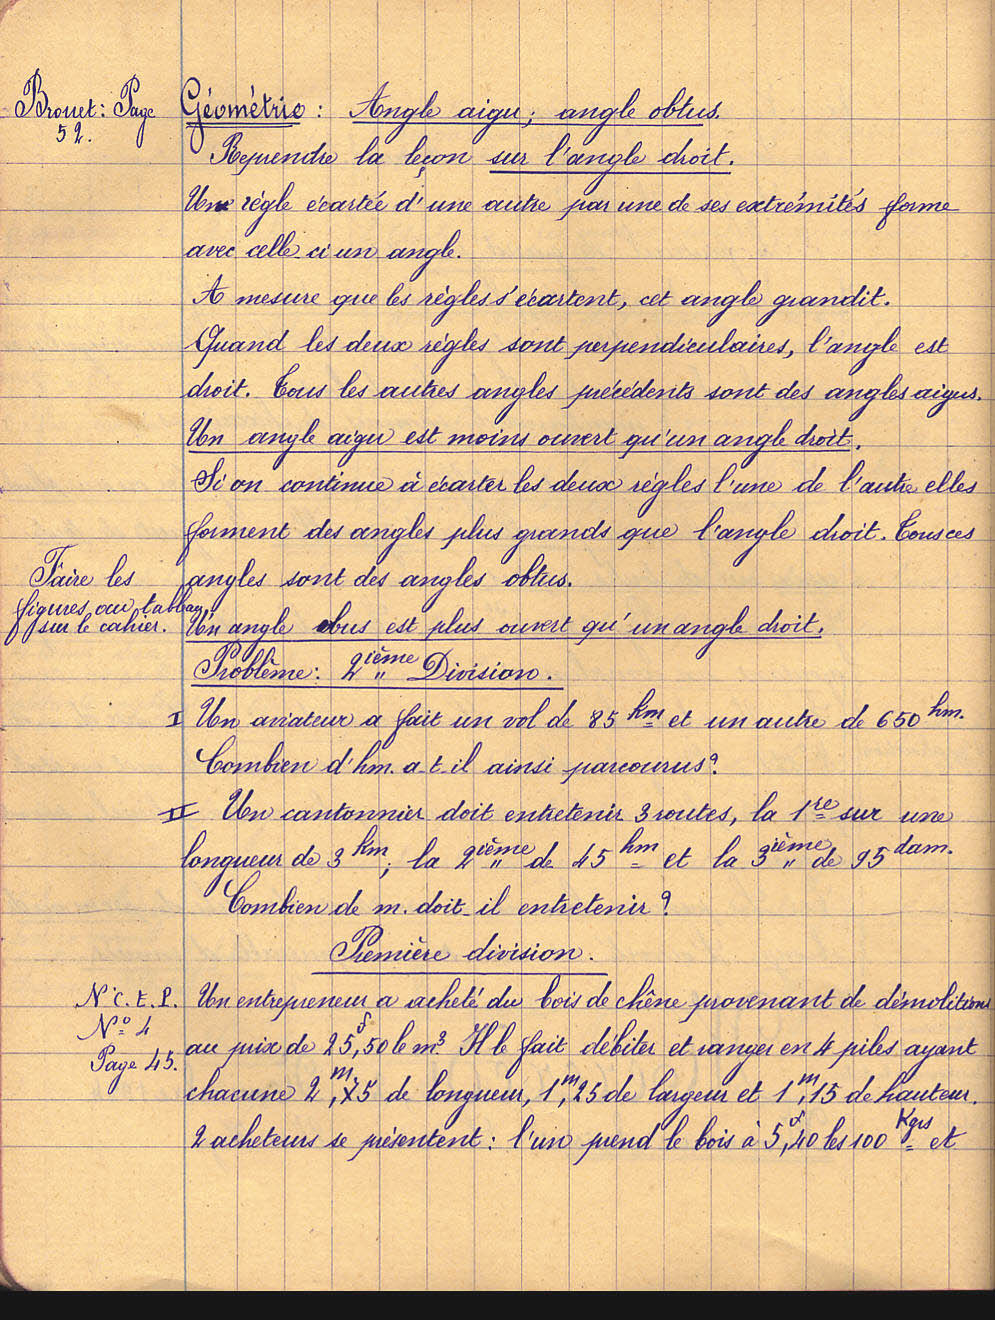 Brouet: Page
52.
Géométrie : Angle aigu ; angle obtus.
Reprendre la leçon sur l'angle droit.
Une règle écartée d'une autre par une de ses extrémités forme
avec celle-ci un angle.
A mesure que les règles s'écartent, cet angle grandit.
Quand les deux règles sont perpendiculaires, l'angle est
droit. Tous les autres angles précédents sont des angles aigus.
Un angle aigu est moins ouvert qu'un angle droit.
Si on continue à écarter les deux règles l'une de l'autre elles
forment des angles plus grands que l'angle droit. Tous ces
angles sont des angles obtus.
Faire les
figures au tableau,
sur le cahier.
Un angle obus est plus ouvert qu'un angle droit.
Problème : 2ième Division.
I Un aviateur a fait un vol de 85 km et un autre de 650 hm.
Combien d'hm. a-t-il ainsi parcourus?
II Un cantonnier doit entretenir 3 routes, la 1re sur une
longueur de 3 km, la 2ième de 45 hm et la 3ième de 95 dam.
Combien de m. doit-il entretenir ?
Première division.
N' C. E. P.
No 4
Page 45.
Un entrepreneur a acheté du bois de chêne provenant de démolitions
au prix de 25f,50 le m3. Il le fait débiter et ranger en 4 piles ayant
chacune 2m,75 de longueur, 1m,25 de largeur et 1m,15 de hauteur.
2 acheteurs se présentent : l'un prend le bois à 5f,40 les 100 Kgs et